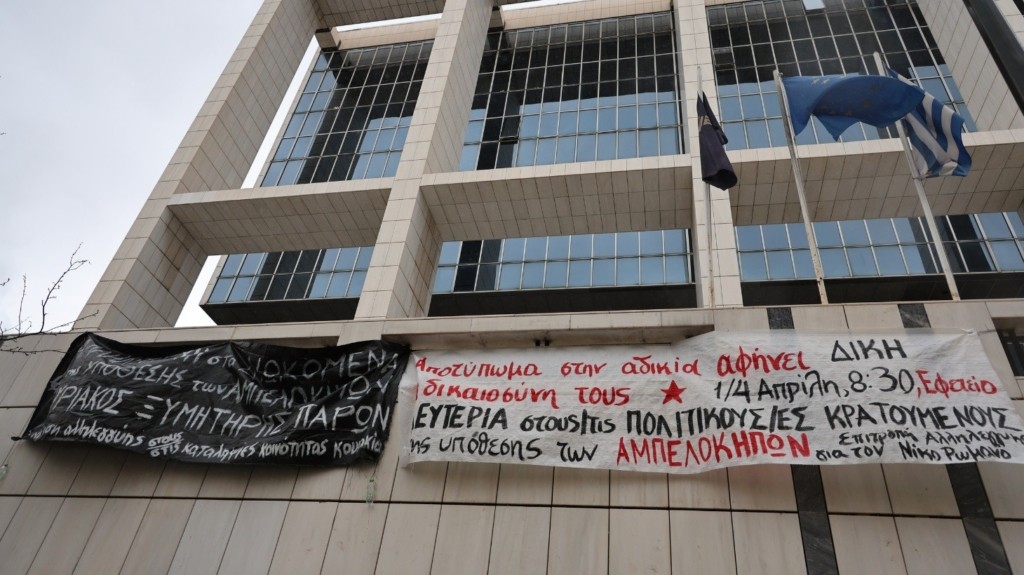 ΔΙΩΚΟΜΕΝΑ
ΥΠΟΘΕΣΗΣ των ΑΜΠΕΛΟΚΗΠΩΝ
ΚΥΡΙΑΚΟΣ ΞΥΜΗΤΗΡΗΣ ΠΑΡΩΝ
αλληλεγγύης στους
στις καταληψίες κοινότητας Κουκακίου
Αποτύπωμα στην αδικία αφήνει
δικαιοσύνη τους
ΔΙΚΗ
1/4 Απρίλη, 8:30, Εφετείο
ΛΕΥΤΕΡΙΑ στους/τις ΠΟΛΙΤΙΚΟΥΣ/ΕΣ ΚΡΑΤΟΥΜΕΝΟΥΣ
της υπόθεσης των ΑΜΠΕΛΟΚΗΠΩΝ
Επιτροπή Αλληλεγγύης
για τον Νίκο Ρωμανό